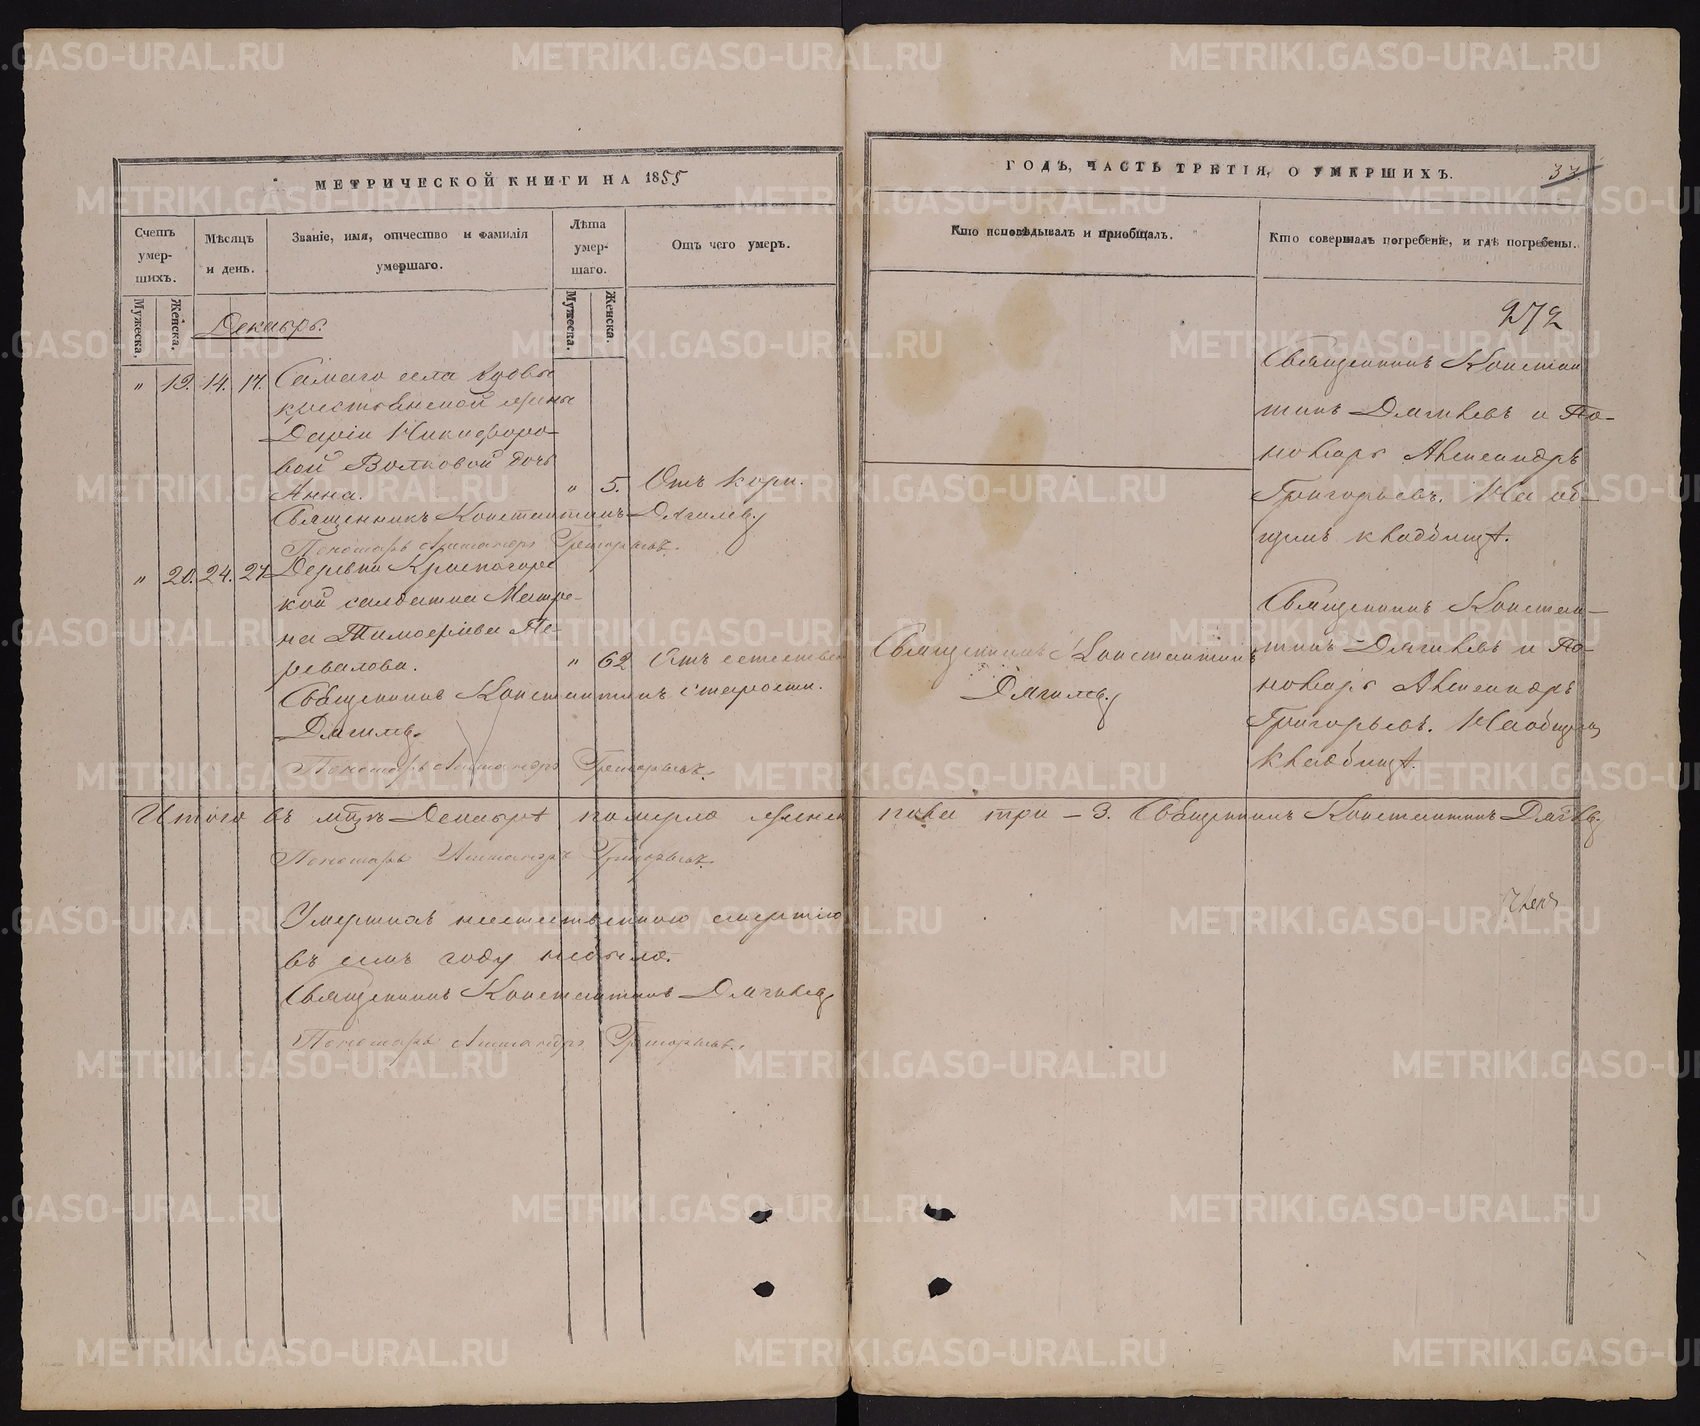 МЕТРИЧЕСКОЙ КНИГИ НА 1855
ГОДЪ, ЧАСТЬ ТРЕТІЯ, О УМЕРШИХЪ.
37
Счетъ умер-шихъ.
Мѣсяцъ и день.
Званіе, имя, отчество и фамилія умершаго.
Лѣта умер-шаго.
Отъ чего умеръ.
Кто исповѣдывалъ и пріобщалъ.
Кто совершалъ погребеніе, и гдѣ погребены.
Мужеска.
Женска.
Мужеска.
Женска.
Декабрь.
272
" 19. 14. 17. Самаго села вдовы
крестьянской жены
Даріи Никифоро-
вой Волковой дочь
Анна. " 5. Отъ кори.
Священникъ Константинъ Дягилевъ
Пономарь Александръ Григорьевъ.
Священникъ Констан
тинъ Дягилевъ и По-
номарь Александръ
Григорьевъ. На об-
щемъ кладбищѣ.
" 20. 24. 27. Деревни Красногорс
кой солдатка Матре-
на Тимофеева Пе-
ревалова. " 62 Отъ естествен
старости.
Священникъ Константинъ
Дягилевъ.
Пономарь Александръ Григорьевъ.
Священникъ Константинъ
Дягилевъ
Священникъ Констан-
тинъ Дягилевъ и По-
номарь Александръ
Григорьевъ. На общем
кладбищѣ.
Итого въ мцѣ Декабрѣ померло женска пола три - 3. Священникъ Константинъ Дягилевъ
Пономарь Александръ Григорьевъ.
Умершихъ неестественною смертію
въ семъ году небыло.
Священникъ Константинъ Дягилевъ
Пономарь Александръ Григорьевъ.
METRIKI.GASO-URAL.RU